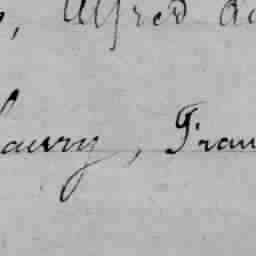 , Alfred
lawry, Fran